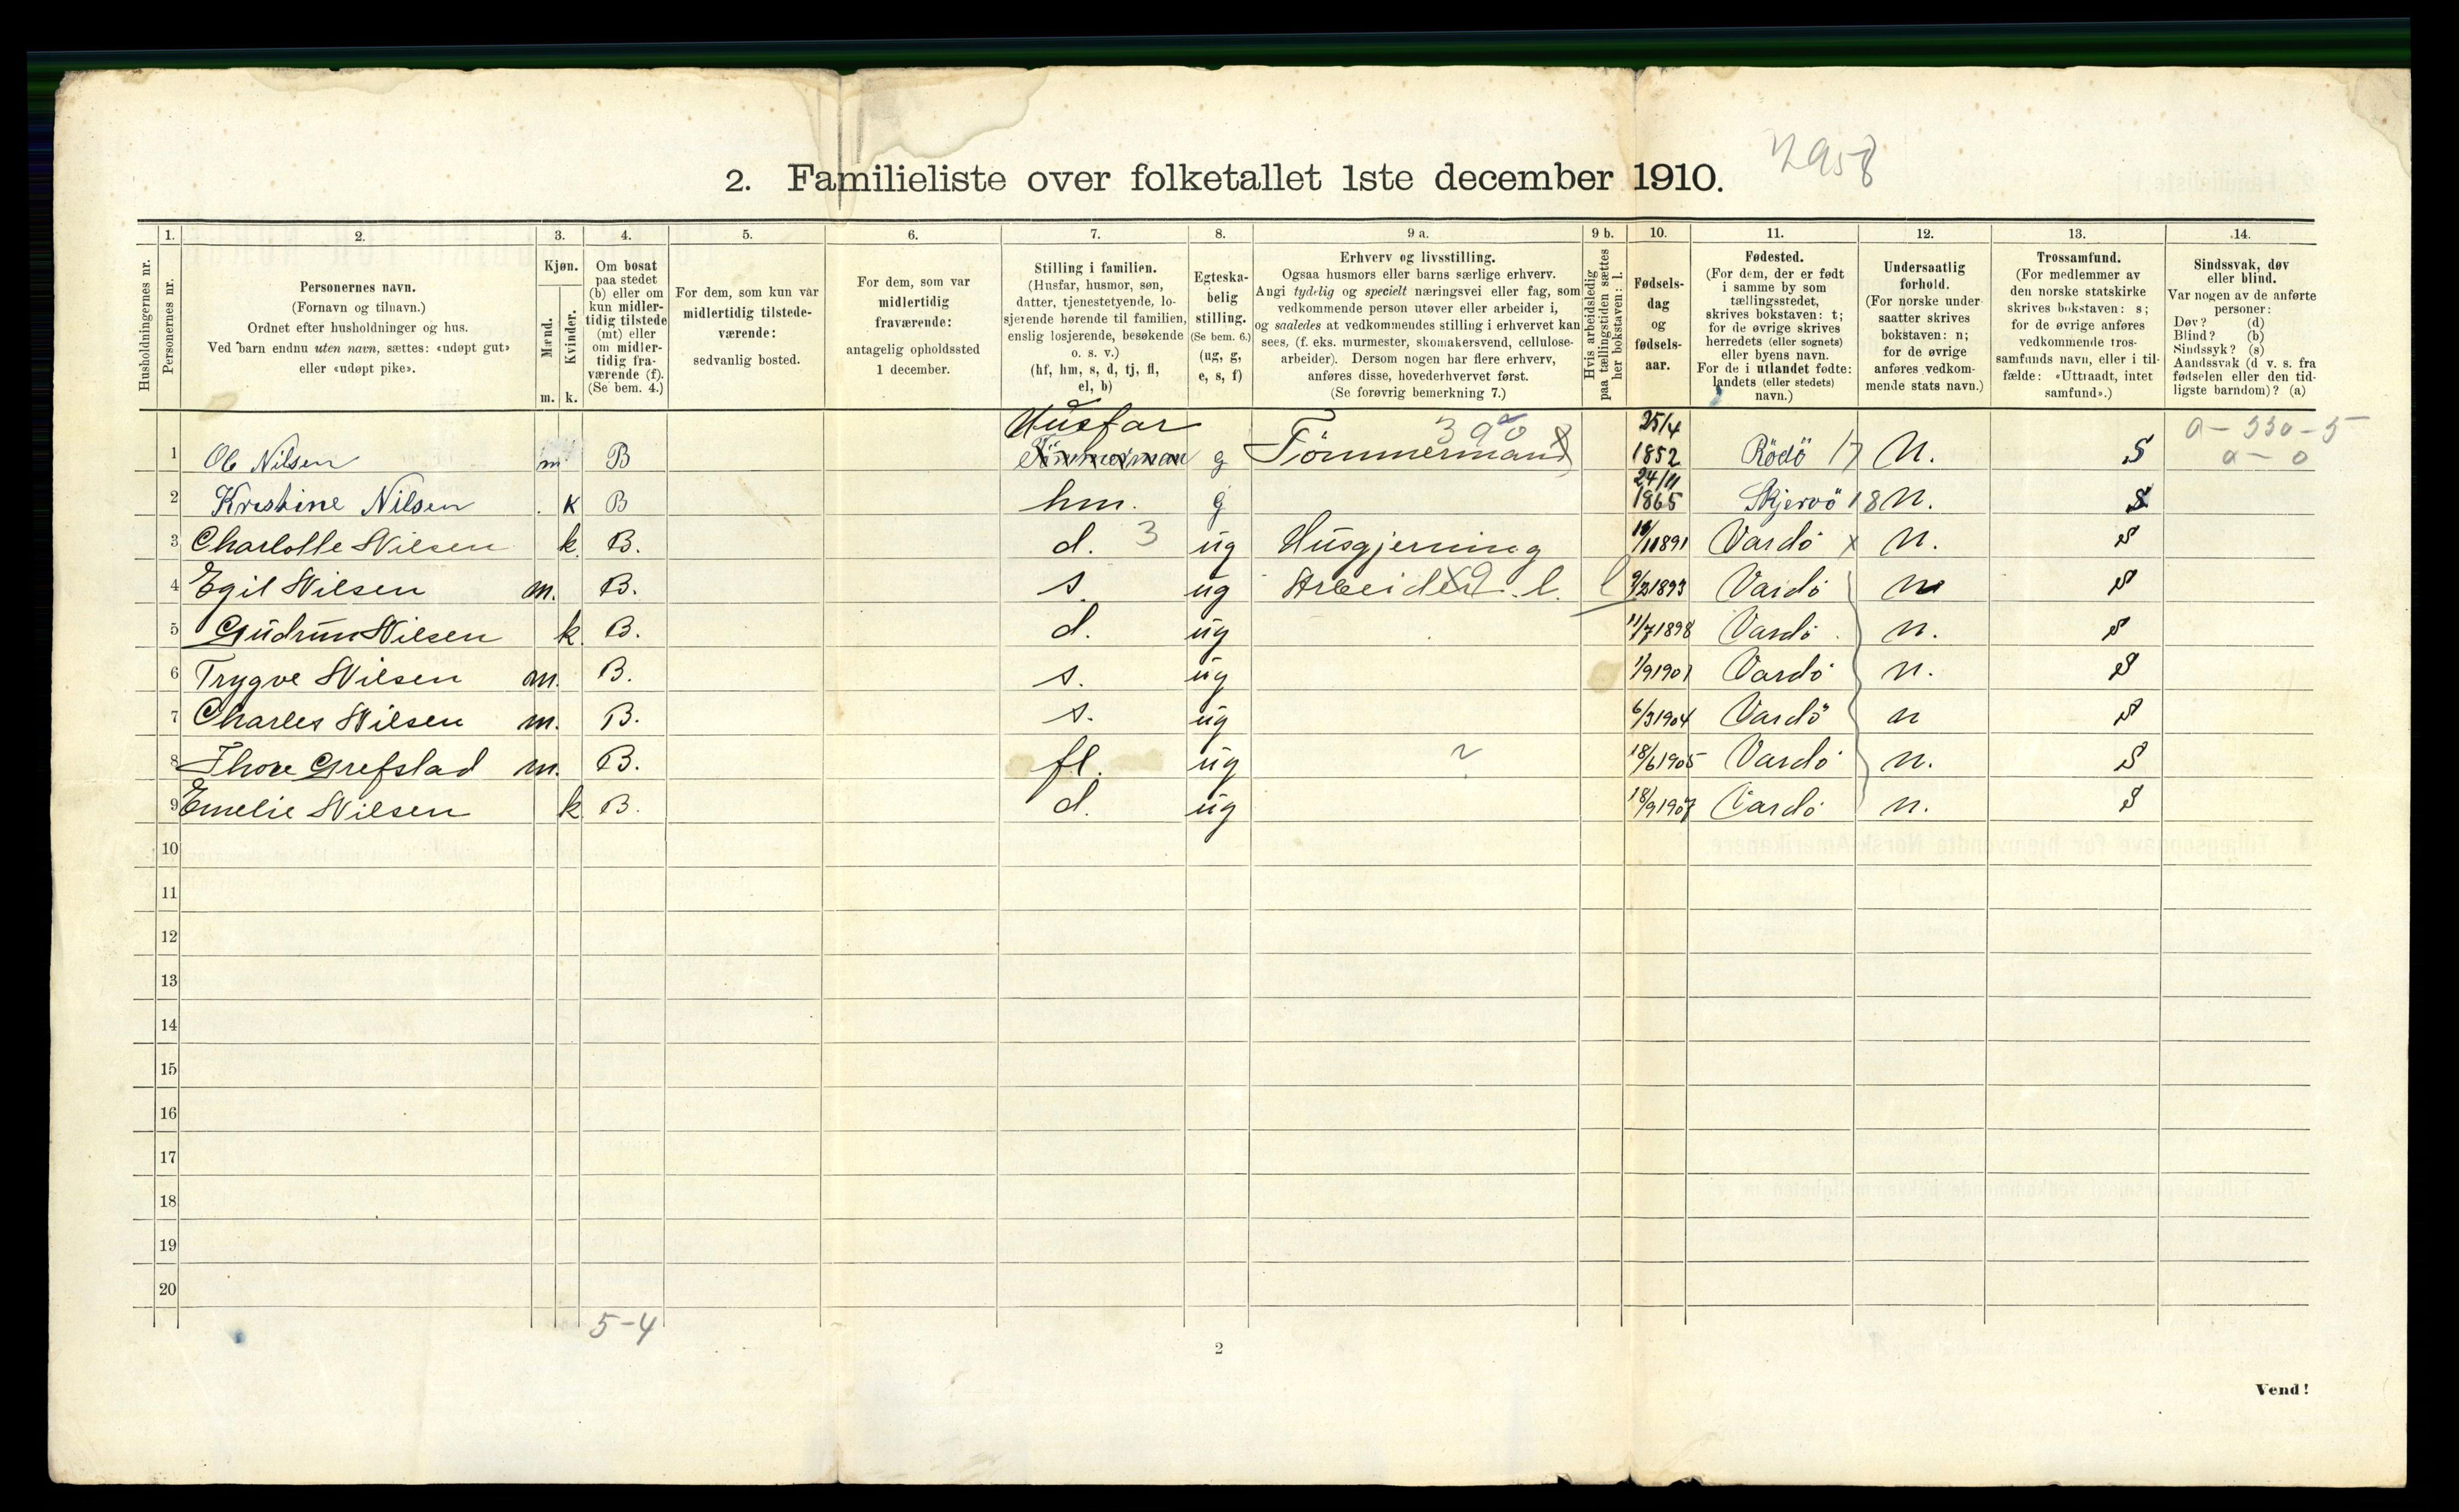 2. Familieliste over folketallet 1ste december 1910.
2958
Husholdningernes nr.
1.
Personernes nr.
2.
Personernes navn.
(Fornavn og tilnavn.)
Ordnet efter husholdninger og hus.
Ved barn endnu uten navn, sættes: «udøpt gut»
eller «udøpt pike».
3.
Kjøn.
Mænd.
Kvinder.
m. k.
4.
Om bosat
paa stedet
(b) eller om
kun midler-
tidig tilstede
(mt) eller
om midler-
tidig fra-
værende (f).
(Se bem. 4.)
5.
For dem, som kun var
midlertidig tilstede-
værende:
sedvanlig bosted.
6.
For dem, som var
midlertidig
fraværende:
antagelig opholdssted
1 december.
7.
Stilling i familien.
(Husfar, husmor, søn,
datter, tjenestetyende, lo-
sjerende hørende til familien,
enslig losjerende, besøkende
o. s. v.)
(hf, hm, s, d, tj, fl,
el, b)
8.
Egteska-
belig
stilling.
(Se bem. 6.)
(ug, g,
e, s, f)
9 a.
Erhverv og livsstilling.
Ogsaa husmors eller barns særlige erhverv.
Angi tydelig og specielt næringsvei eller fag, som
vedkommende person utøver eller arbeider i,
og saaledes at vedkommendes stilling i erhvervet kan
sees, (f. eks. murmester, skomakersvend, cellulose-
arbeider). Dersom nogen har flere erhverv,
anføres disse, hovederhvervet først.
(Se forøvrig bemerkning 7.)
9 b.
Hvis arbeidsledig
paa tællingstiden sættes
her bokstaven: l.
10.
Fødsels-
dag
og
fødsels-
aar.
11.
Fødested.
(For dem, der er født
i samme by som
tællingsstedet,
skrives bokstaven: t;
for de øvrige skrives
herredets (eller sognets)
eller byens navn.
For de i utlandet fødte:
landets (eller stedets)
navn.)
12.
Undersaatlig
forhold.
(For norske under-
saatter skrives
bokstaven: n;
for de øvrige
anføres vedkom-
mende stats navn.)
13.
Trossamfund.
(For medlemmer av
den norske statskirke
skrives bokstaven: s;
for de øvrige anføres
vedkommende tros-
samfunds navn, eller i til-
fælde: «Uttraadt, intet
samfund».)
14.
Sindssvak, døv
eller blind.
Var nogen av de anførte
personer:
Døv? (d)
Blind? (b)
Sindssyk? (s)
Aandssvak (d v. s. fra
fødselen eller den tid-
ligste barndom)? (a)
Husfar 390 25/4 a - 330 - 5
1 Ole Nilsen m B Tömmerman g Tömmermand 1852 Rödö 17 N. S a - 0
2 Kristine Nilsen k B hm. g 24/11 1865 Skjervö 18 N. S
3 Charlotte Nilsen k B. d. 3 ug Husgjerning 1891 Vardö x N. S
4 Egil Nilsen m. B. s. ug Arbeider l. l 9/2 1893 Vardö n S
5 Gudrun Nilsen k B. d. ug 11/7 1898 Vardö n. S
6 Trygve Nilsen m. B. s. ug 1/9 1901 Vardö n. S
7 Charles Nilsen m. B. s. ug 6/3 1904 Vardö n S
8 Thore Grefstad m. B. fl. ug 18/6 1905 Vardö n. S
9 Emelie Nilsen k B. d. ug 18/9 1907 Vardö n. S
10
11
12
13
14
15
16
17
18
19
20
5-4
2
Vend!